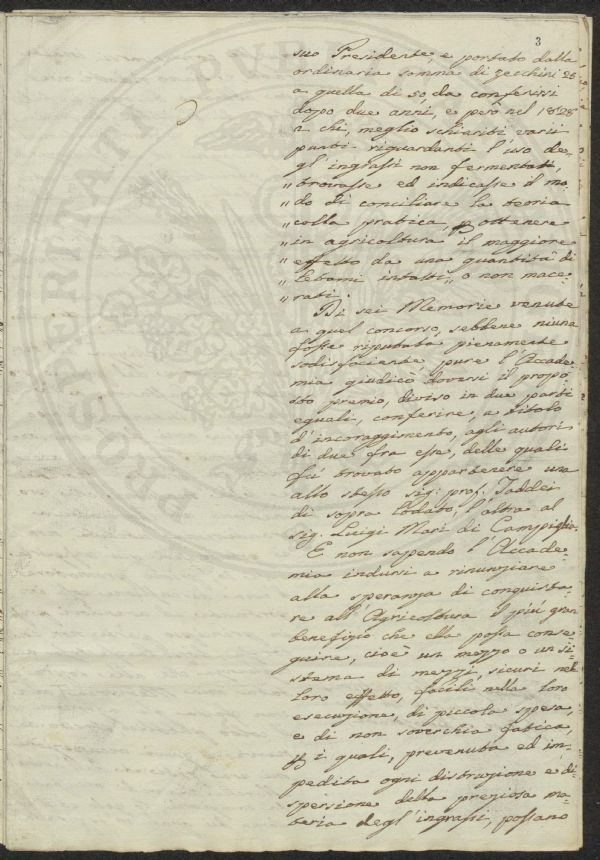 3
suo Presidente, e portato dalla
ordinaria somma di zecchini 25
a quella di 50 da conferirsi
dopo due anni, e però nel 1828
a chi, meglio schiariti varii
punti riguardanti l'uso de=
gl'ingrassi non fermentati,
„ trovasse ed indicasse il mo=
„ do di conciliare la teoria
„ colla pratica, p ottenere
„ in agricoltura il maggiore
„ effetto da una quantità di
„ letami intatti, o non mace=
„ rati.
Di sei Memorie venute
a quel concorso, sebbene niuna
fosse riputata pienamente
sodisfaciente, pure l'Accade=
mia giudicò doversi il propo=
sto premio, diviso in due parti
eguali, conferire, a titolo
d'incoraggimento, agli autori
di due fra esse, delle quali
fù trovato appartenere una
allo stesso sig. prof. Taddei
di sopra lodato, l'altra al
sig. Luigi Mori di Campiglia.
E non sapendo l'Accade=
mia indursi a rinunziare
alla speranza di conquista=
re all'Agricoltura il più gran
benefizio che ella possa conse=
guire, cioè un mezzo o un si=
stema di mezzi, sicuri nel
loro effetto, facili nella loro
esecuzione, di piccola spesa
e di non soverchia fatica,
p i quali, prevenuta ed im=
pedita ogni distruzione e di=
spersione della preziosa ma=
teria degl'ingrassi, possano
PROSPERITATI